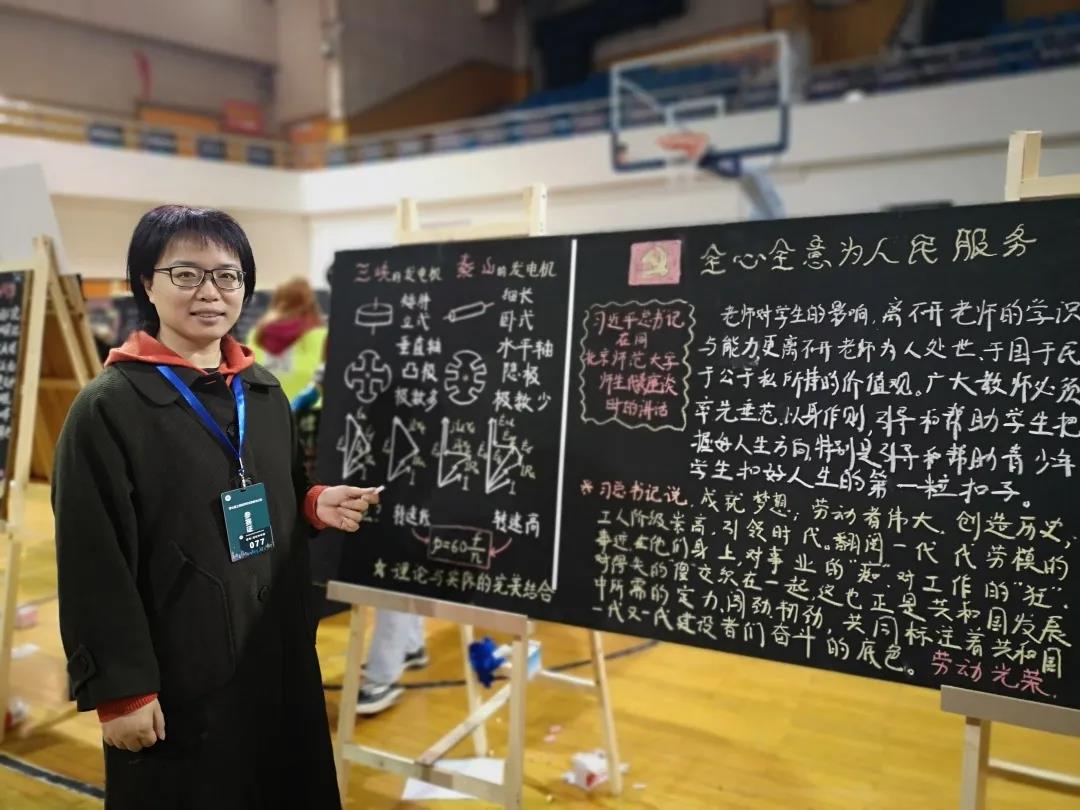 三峡的发电机 燕山的发电机
矮胖 细长
立式 卧式
垂直轴 水平轴
凸极 隐极
极数多 极数少
转速低 转速高
p=60f/n
理论与实际的完美结合
全心全意为人民服务
习近平总书记
在同
北京师范大学
师生座谈
时的讲话
老师对学生的影响,离不开老师的学识
与能力,更离不开老师为人处世、于国于民、
于公于私所持的价值观。广大教师必须
率先垂范、以身作则,引导和帮助学生把
握好人生方向,特别是引导和帮助青少年
学生扣好人生的第一粒扣子。
习总书记说,成就梦想;劳动者伟大,创造历史,
工人阶级崇高,引领时代。翻阅一代代劳模的
事迹,在他们身上,对事业的“痴”,对工作的“狂”,
对得失的“傻”交织在一起,这也正是共和国发展
中所需的定力、闯劲、韧劲,共同标注着共和国
一代又一代建设者们奋斗的底色。劳动光荣。
参赛证
077